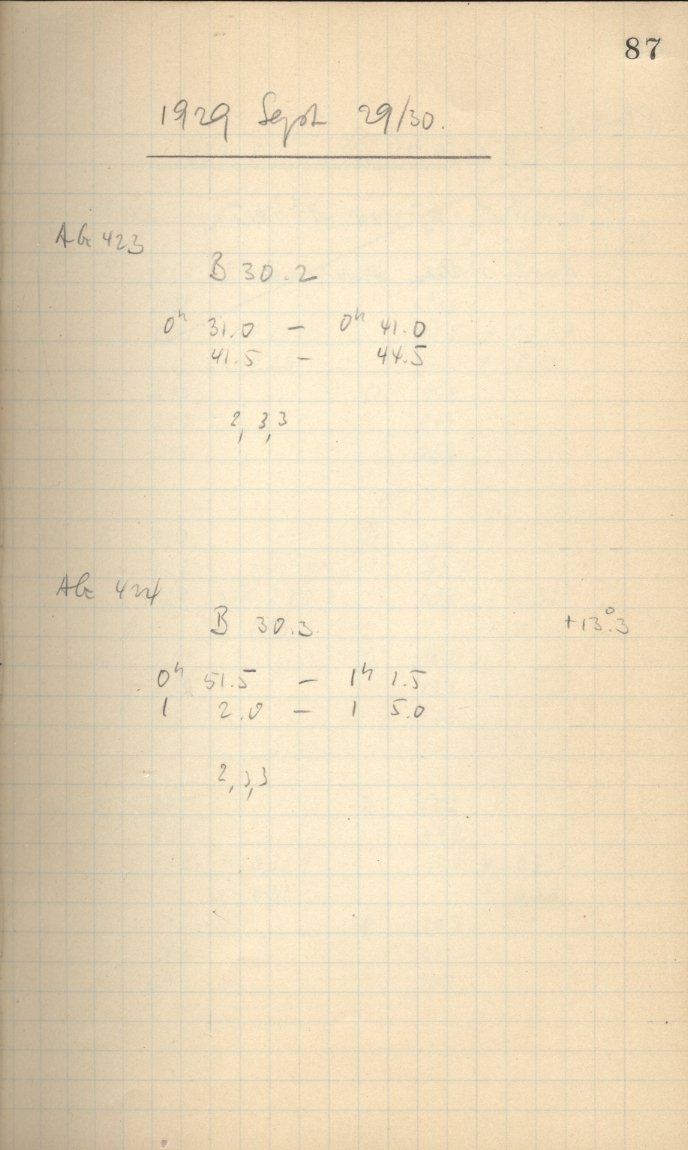 87
1929 Sept 29/30.
AG 423
B 30.2
0h 31.0 – 0h 41.0
41.5 – 44.5
2, 3, 3
AG 424
B 30.3 +13°.3
0h 51.5 – 1h 1.5
1 2.0 – 1 5.0
2, 3, 3